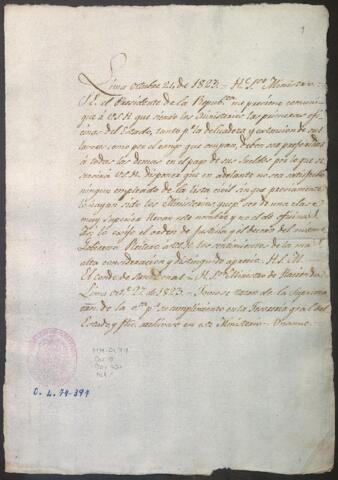 1
Lima octubre 24 de 1823. = H.e S.or Ministro =
S.E. el Presidente de la Repub.ca me previene comuni
que à V.S.H. que siendo los Ministerios las primeras ofi
cinas del Estado, tanto p.r la delicadeza y extencion de sus
tareas como por el rango que ocupan, deben ser preferidas
à todas las demas en el pago de sus sueldos por lo que se
servirá V.S.H. disponer que en adelante no sea satisfecho
ningun empleado de la lista civil sin que previamente
lo hayan sido los Ministerios, que p.r ser de una clase
muy superior llevan este nombre y no el de oficinas.
Asi lo exije el orden de justicia y el decoro del mismo
Gobierno. Reitero à V.S.H. los sentimientos de la mas
alta consideracion y distinguido aprecio. H.S.M.
El conde de San Donas = H. S.or Ministro de Hacienda
Lima oct.e 27 de 1823. = Tomese razon de la Suprema
orn. de la v.ta p.a su cumplimiento en la Tesoreria gral. del
Estado, y fho. archivese en este Ministerio = Unanue
O. L. 74-391